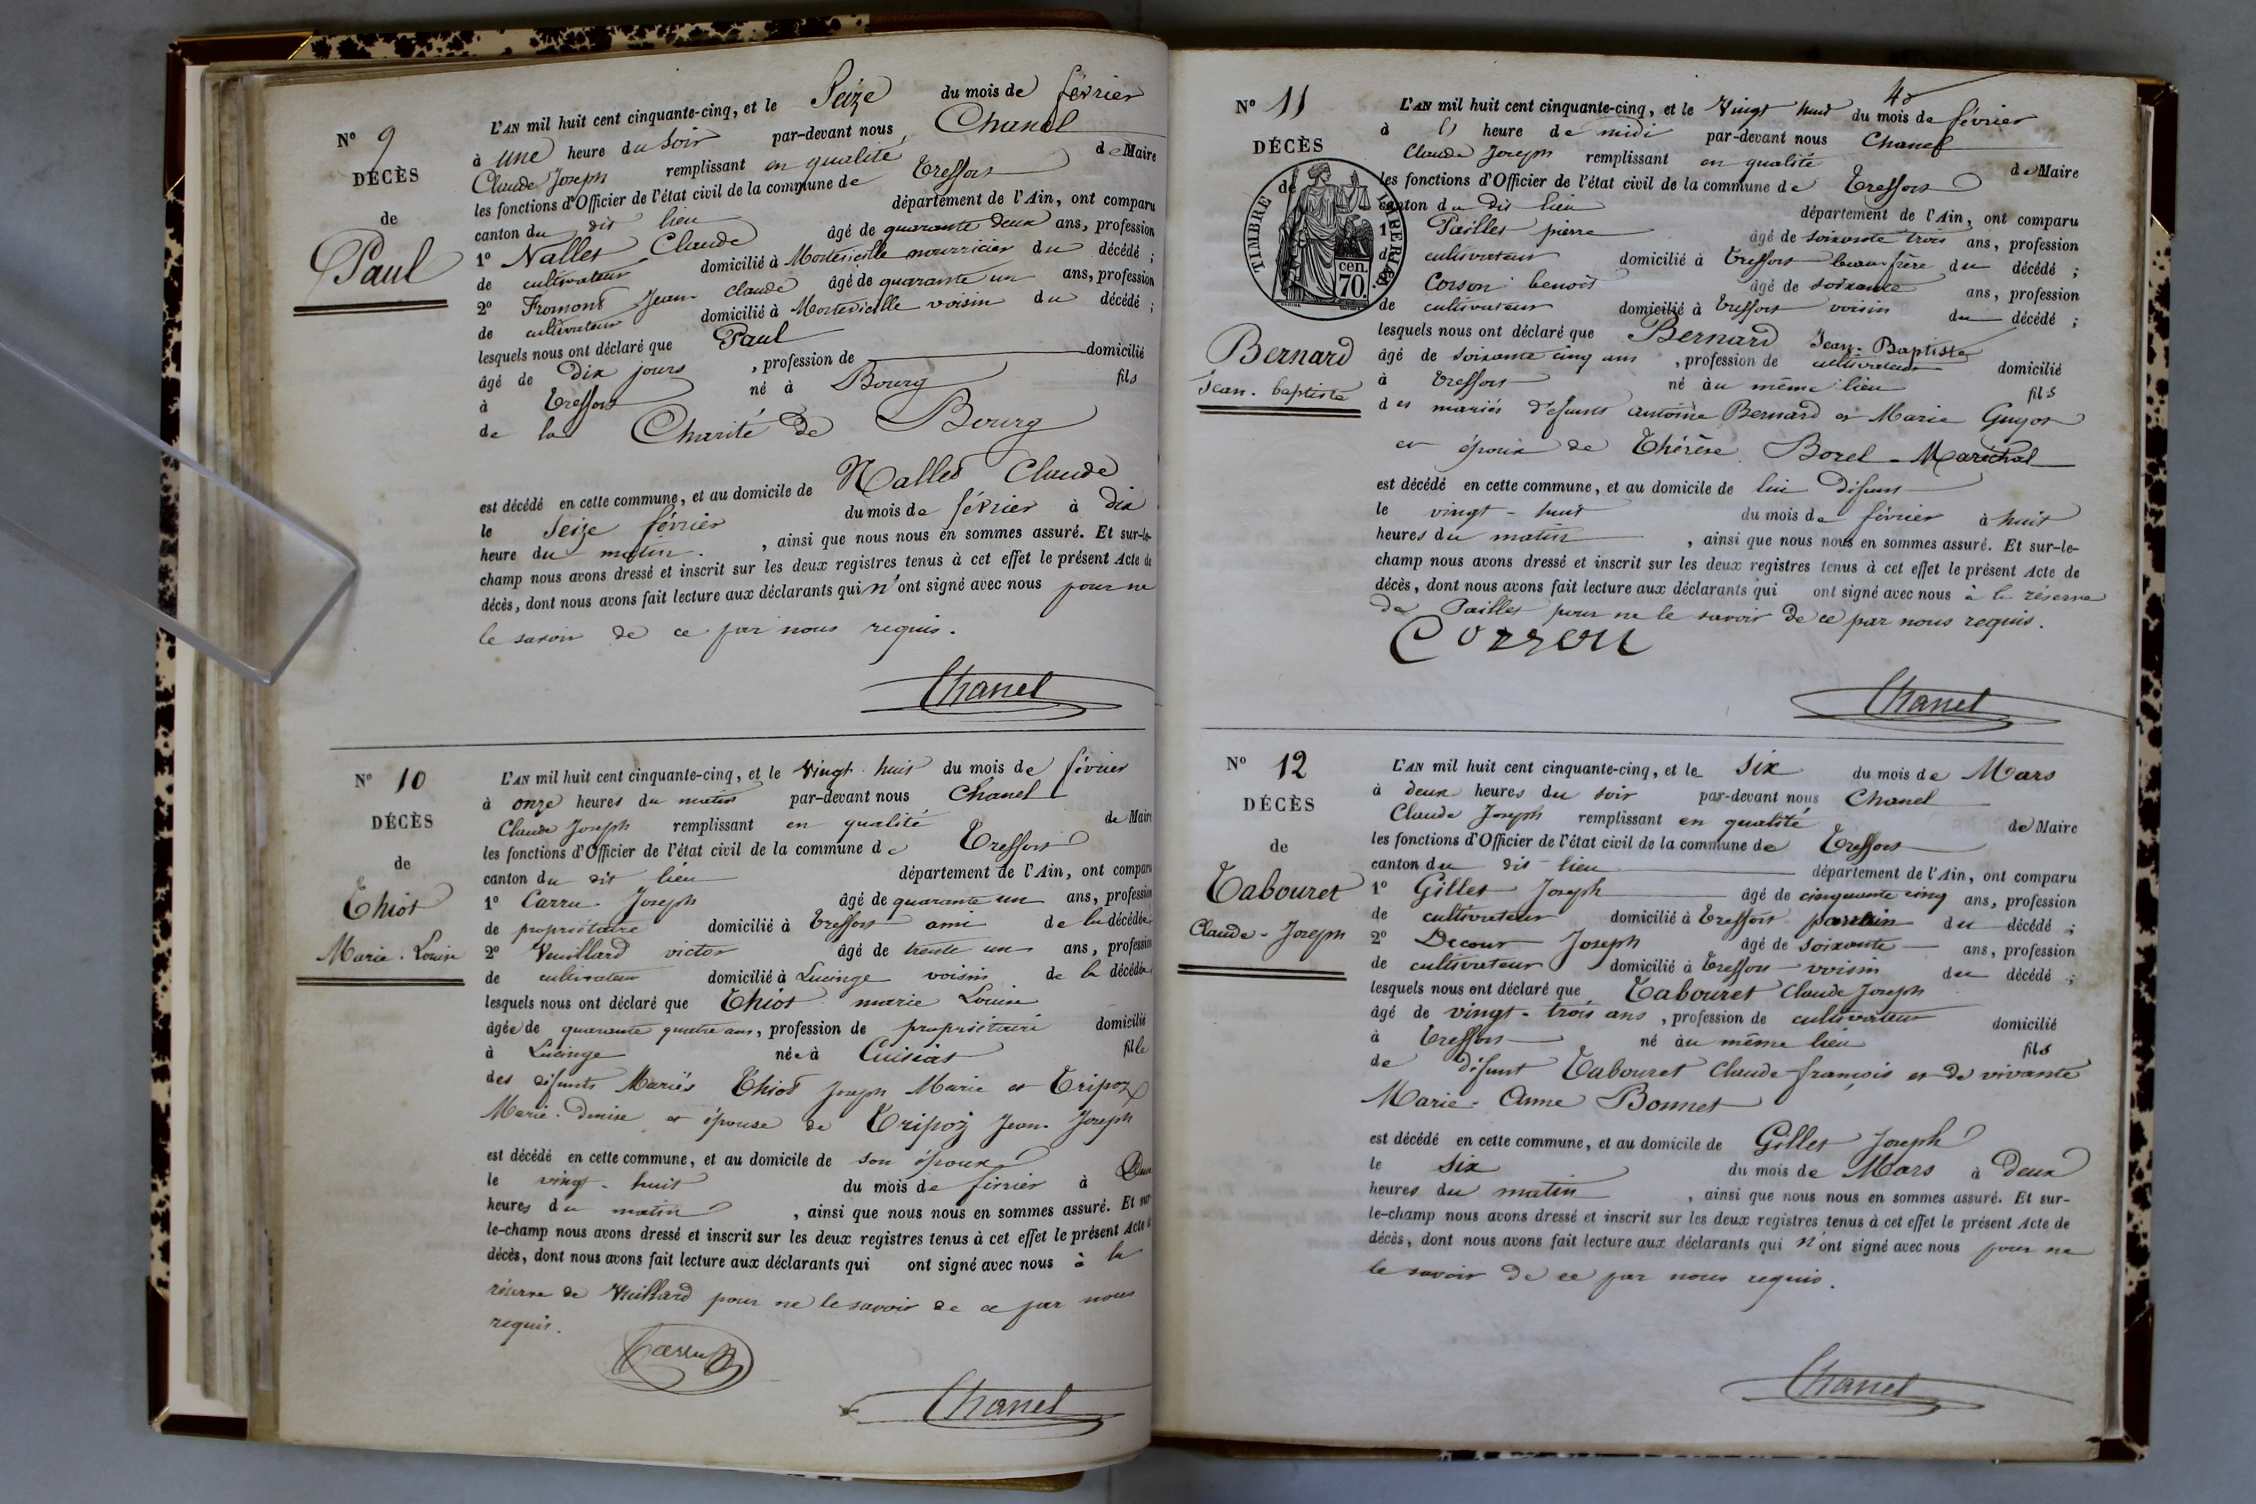 N° 9
DÉCÈS
de
Paul
L'AN mil huit cent cinquante-cinq, et le Seize du mois de février
à une heure du soir par-devant nous Chanel
Claude Joseph remplissant en qualité de Maire
les fonctions d'Officier de l'état civil de la commune de Treffort
canton du dit lieu département de l'Ain, ont comparu
1° Nallet Claude âgé de quarante deux ans, profession
de cultivateur domicilié à nourricier du décédé ;
2° Fromont Jean Claude âgé de quarante un ans, profession
de cultivateur domicilié à voisin du décédé ;
lesquels nous ont déclaré que Paul
âgé de dix jours , profession de domicilié
à Treffort né à Bourg fils
de la Charité de Bourg
est décédé en cette commune, et au domicile de Nallet Claude
le Seize février du mois de février à dix
heure du matin. , ainsi que nous nous en sommes assuré. Et sur-le-
champ nous avons dressé et inscrit sur les deux registres tenus à cet effet le présent Acte de
décès, dont nous avons fait lecture aux déclarants qui n'ont signé avec nous pour ne
le savoir de ce par nous requis.
Chanel
N° 10
DÉCÈS
de
Thiot
Marie. Louise
L'AN mil huit cent cinquante-cinq, et le vingt huit du mois de février
à onze heures du matin par-devant nous Chanel
Claude Joseph remplissant en qualité de Maire
les fonctions d'Officier de l'état civil de la commune de Treffort
canton du dit lieu département de l'Ain, ont comparu
1° Carru Joseph âgé de quarante un ans, profession
de propriétaire domicilié à Treffort ami de la décédée
2° Vuillard victor âgé de trente un ans, profession
de cultivateur domicilié à Lucinge voisin de la décédée
lesquels nous ont déclaré que Thiot marie Louise
âgée de quarante quatre ans, profession de propriétaire domicilié
à Lucinge née à Cuisiat fille
des défunts Mariés Thiot Joseph Marie et Tripoz
Marie. Denise et épouse de Tripoz Jean Joseph
est décédé en cette commune, et au domicile de son époux
le vingt-huit du mois de février à Deux
heures du matin , ainsi que nous nous en sommes assuré. Et sur
le-champ nous avons dressé et inscrit sur les deux registres tenus à cet effet le présent Acte de
décès, dont nous avons fait lecture aux déclarants qui ont signé avec nous à la
réserve de Vuillard pour ne le savoir de ce par nous
requis.
Carru
Chanel
N° 11
DÉCÈS
de
TIMBRE IMPERIAL
cen.
70.
Bernard
Jean. baptiste
L'AN mil huit cent cinquante-cinq, et le vingt huit du mois de février
à heure de midi par-devant nous Chanel
Claude Joseph remplissant en qualité de Maire
les fonctions d'Officier de l'état civil de la commune de Treffort
canton du dit lieu département de l'Ain, ont comparu
1° Paillet pierre âgé de soixante trois ans, profession
de cultivateur domicilié à Treffort beau frère du décédé ;
Corson benoit âgé de soixante ans, profession
de cultivateur domicilié à Treffort voisin du décédé ;
lesquels nous ont déclaré que Bernard Jean-Baptiste
âgé de soixante cinq ans , profession de cultivateur domicilié
à Treffort né au même lieu fils
des mariés défunts antoine Bernard et Marie Guyot
et époux de Thérèse Borel-Maréchal
est décédé en cette commune, et au domicile de lui défunt
le vingt-huit du mois de février à huit
heures du matin , ainsi que nous nous en sommes assuré. Et sur-le-
champ nous avons dressé et inscrit sur les deux registres tenus à cet effet le présent Acte de
décès, dont nous avons fait lecture aux déclarants qui ont signé avec nous a la réserve
de Paillet pour ne le savoir de ce par nous requis.
Corson
Chanel
N° 12
DÉCÈS
de
Tabouret
Claude-Joseph
L'AN mil huit cent cinquante-cinq, et le six du mois de Mars
à deux heures du soir par-devant nous Chanel
Claude Joseph remplissant en qualité de Maire
les fonctions d'Officier de l'état civil de la commune de Treffort
canton du dit lieu département de l'Ain, ont comparu
1° Gillet Joseph âgé de cinquante cinq ans, profession
de cultivateur domicilié à Treffort parrain du décédé ;
2° Decour Joseph âgé de soixante ans, profession
de cultivateur domicilié à Treffort voisin du décédé ;
lesquels nous ont déclaré que Tabouret Claude Joseph
âgé de vingt-trois ans , profession de cultivateur domicilié
à Treffort né au même lieu fils
de défunt Tabouret Claude-françois et de vivante
Marie-Anne Bonnet
est décédé en cette commune, et au domicile de Gillet Joseph
le six du mois de Mars à Deux
heures du matin , ainsi que nous nous en sommes assuré. Et sur-
le-champ nous avons dressé et inscrit sur les deux registres tenus à cet effet le présent Acte de
décès, dont nous avons fait lecture aux déclarants qui n'ont signé avec nous pour ne
le savoir de ce par nous requis.
Chanel